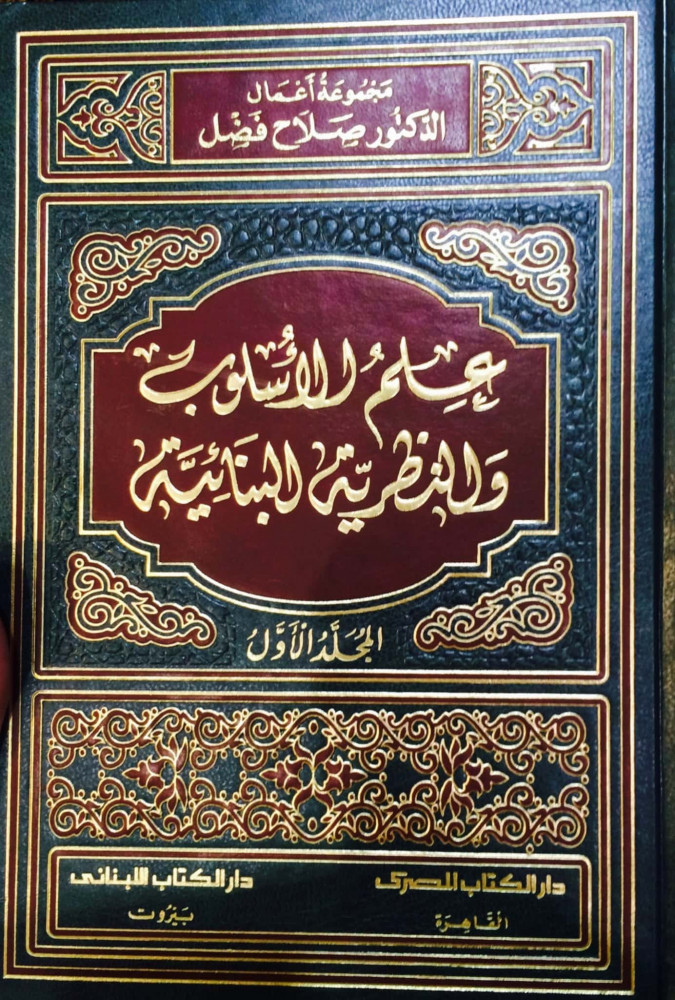 مَجْمُوعَةُ أَعْمَال
الدّكتُور صَلَاح فَضْل
عِلمُ الأُسلُوب
وَالنظريّة البنَائِيَّة
المُجَلَّدُ الْأَوَّلُ
دار الكتاب المصرى
القَاهِرَة
دار الكتاب اللبنانى
بَيْرُوت